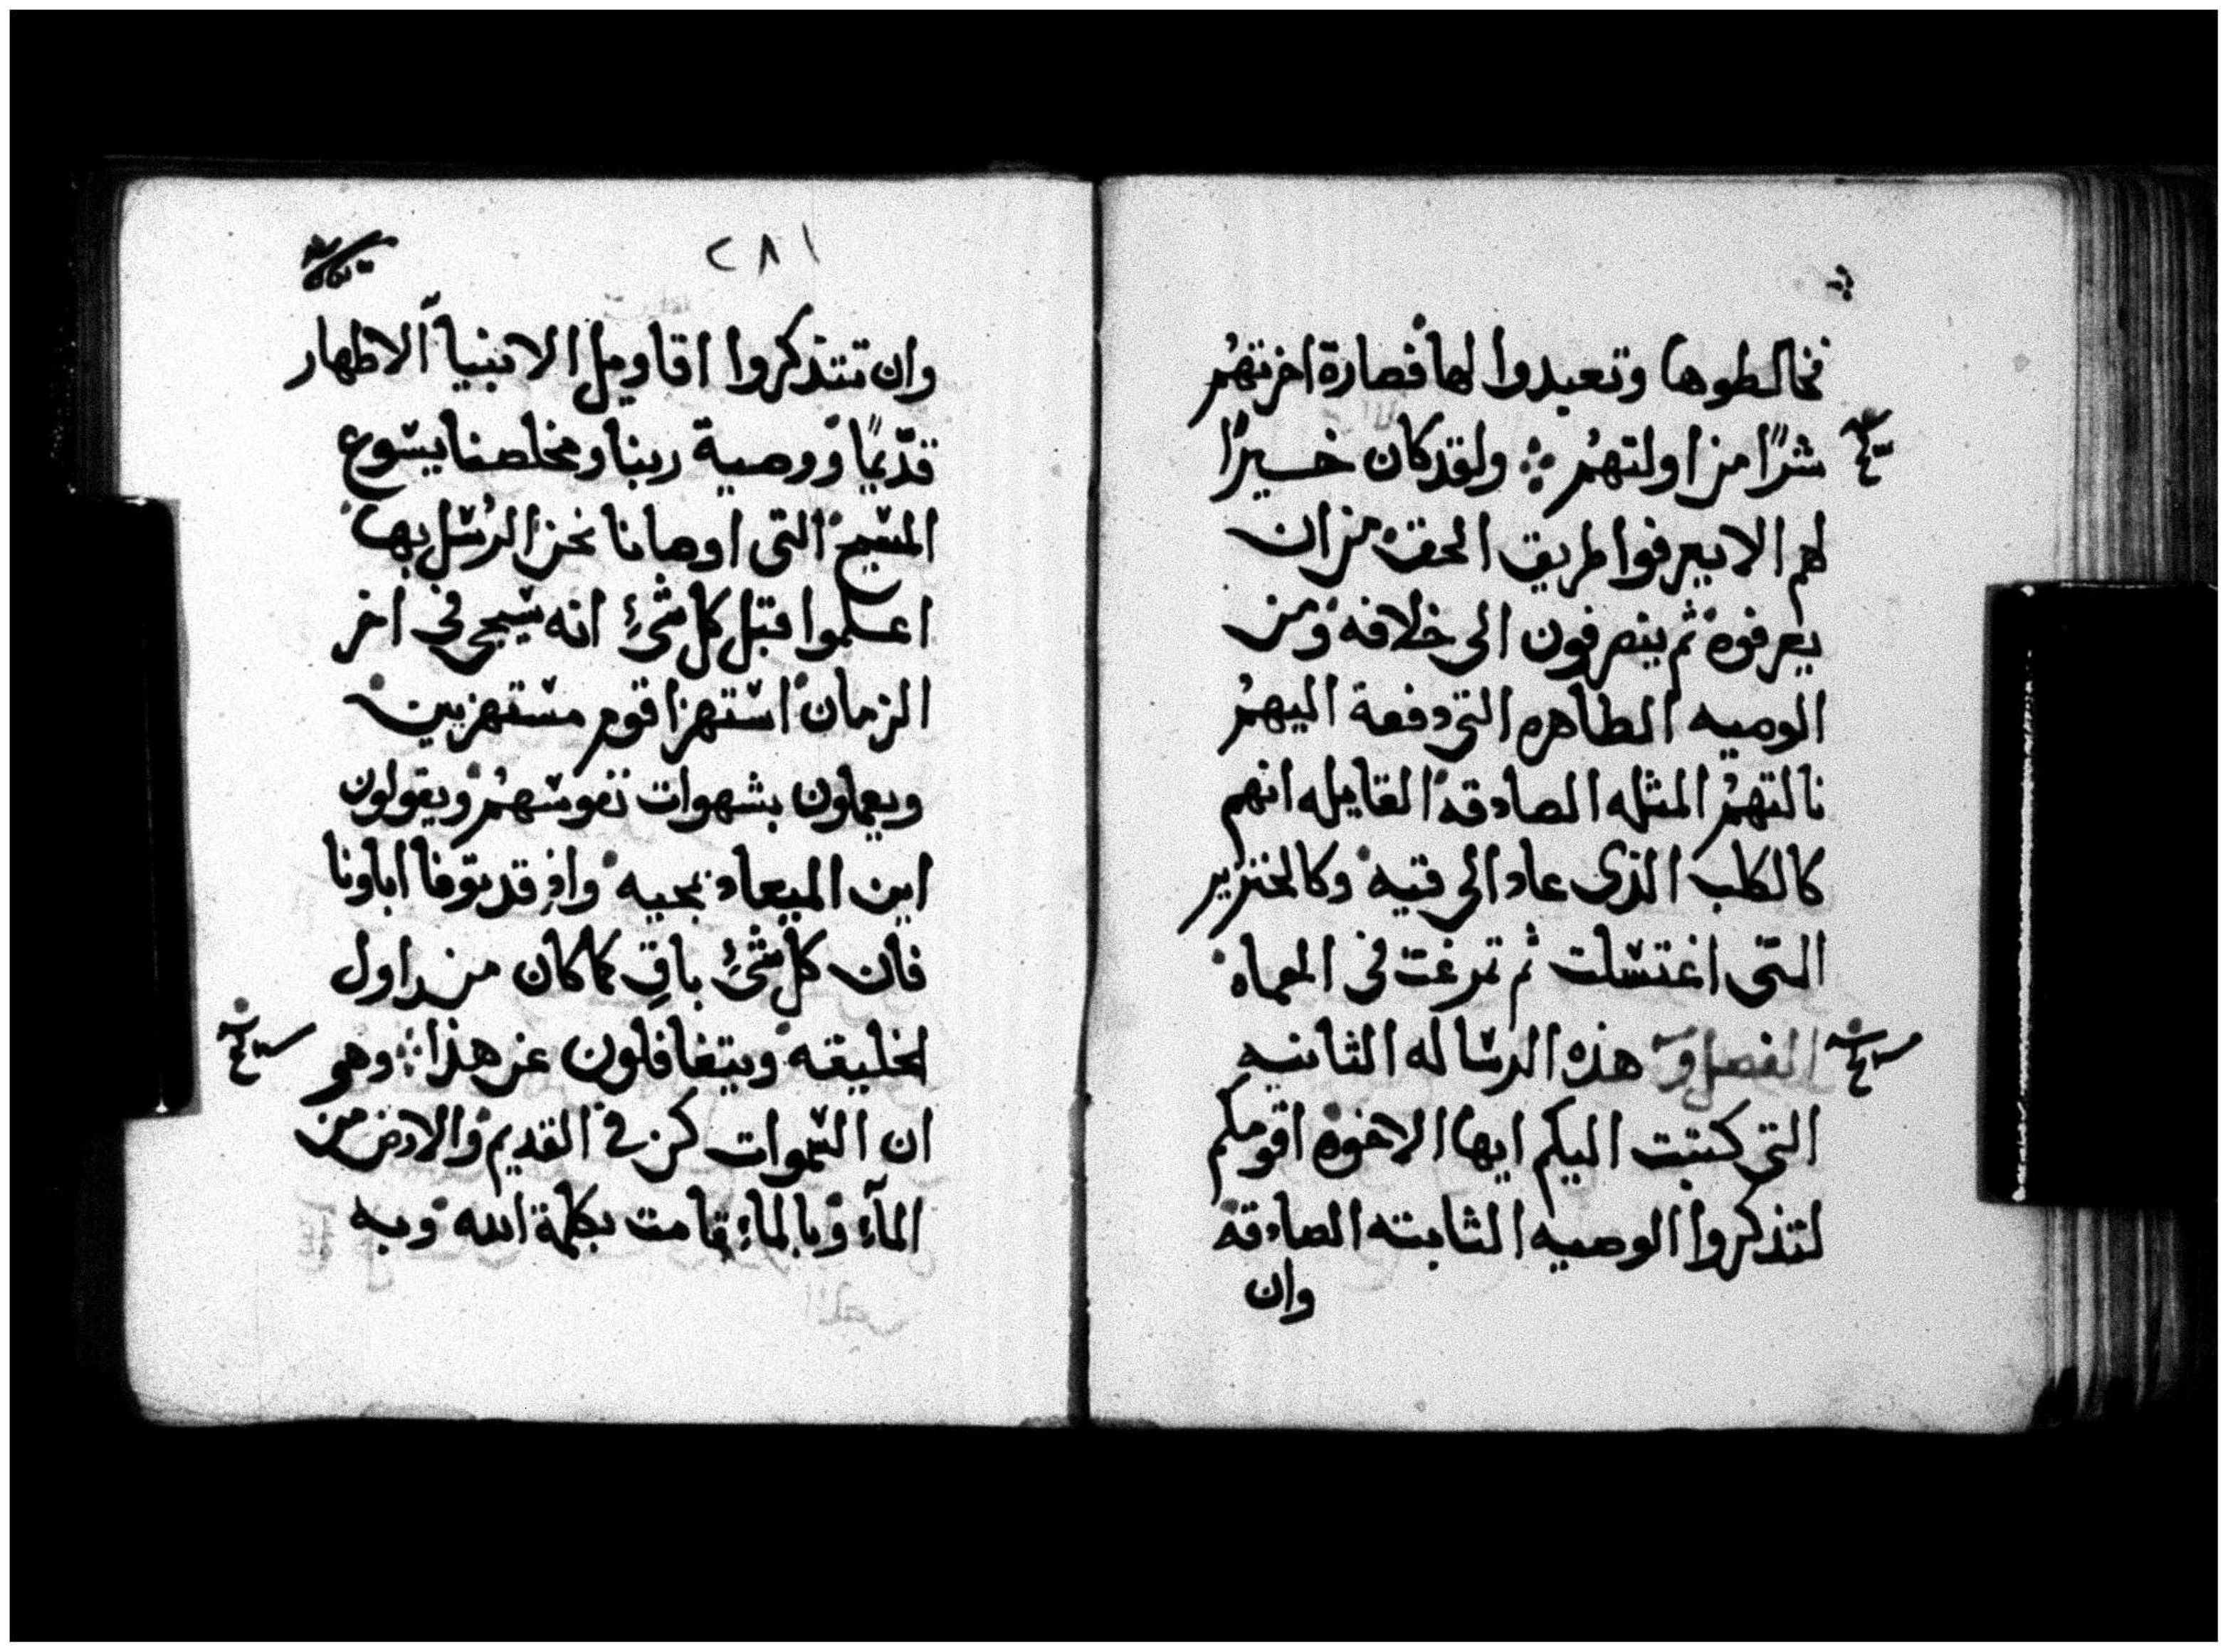 فخالطوها وتعبدوا لها فصارة اخرتهم
شرًا من اولتهم ولقد كان خيرًا
لهم الا يعرفوا طريق الحق من ان
يعرفوه ثم ينصرفون الى خلافه ومن
الوصيه الطاهره التى دفعة اليهم
نالتهم المثله الصادقه القايله انهم
كالكلب الذى عاد الى قيه وكالخنزير
التى اغتسلت ثم تمرغت فى الحماه
الفصل و هذه الرساله الثانيه
التى كتبت اليكم ايها الاخوه اقومكم
لتذكروا الوصيه الثابته الصادقه
وان
٢٨١
وان تتذكروا اقاويل الانبيآ الاطهار
قديمًا ووصية ربنا ومخلصنا يسوع
المسيح التى اوصانا نحن الرسل بها
اعلموا قبل كل شئ انه سيجى فى اخر
الزمان استهزا قوم مستهزيين
ويعملون بشهوات نفوسهم ويقولون
اين الميعاد بمجيه واذ قد توفا اباونا
فان كل شئ باقٍ كما كان من اول
الخليقه ويتغافلون عن هذا وهو
ان السموات كن فى القديم والارض من
المآء وبالماء قامت بكلمة الله وبه